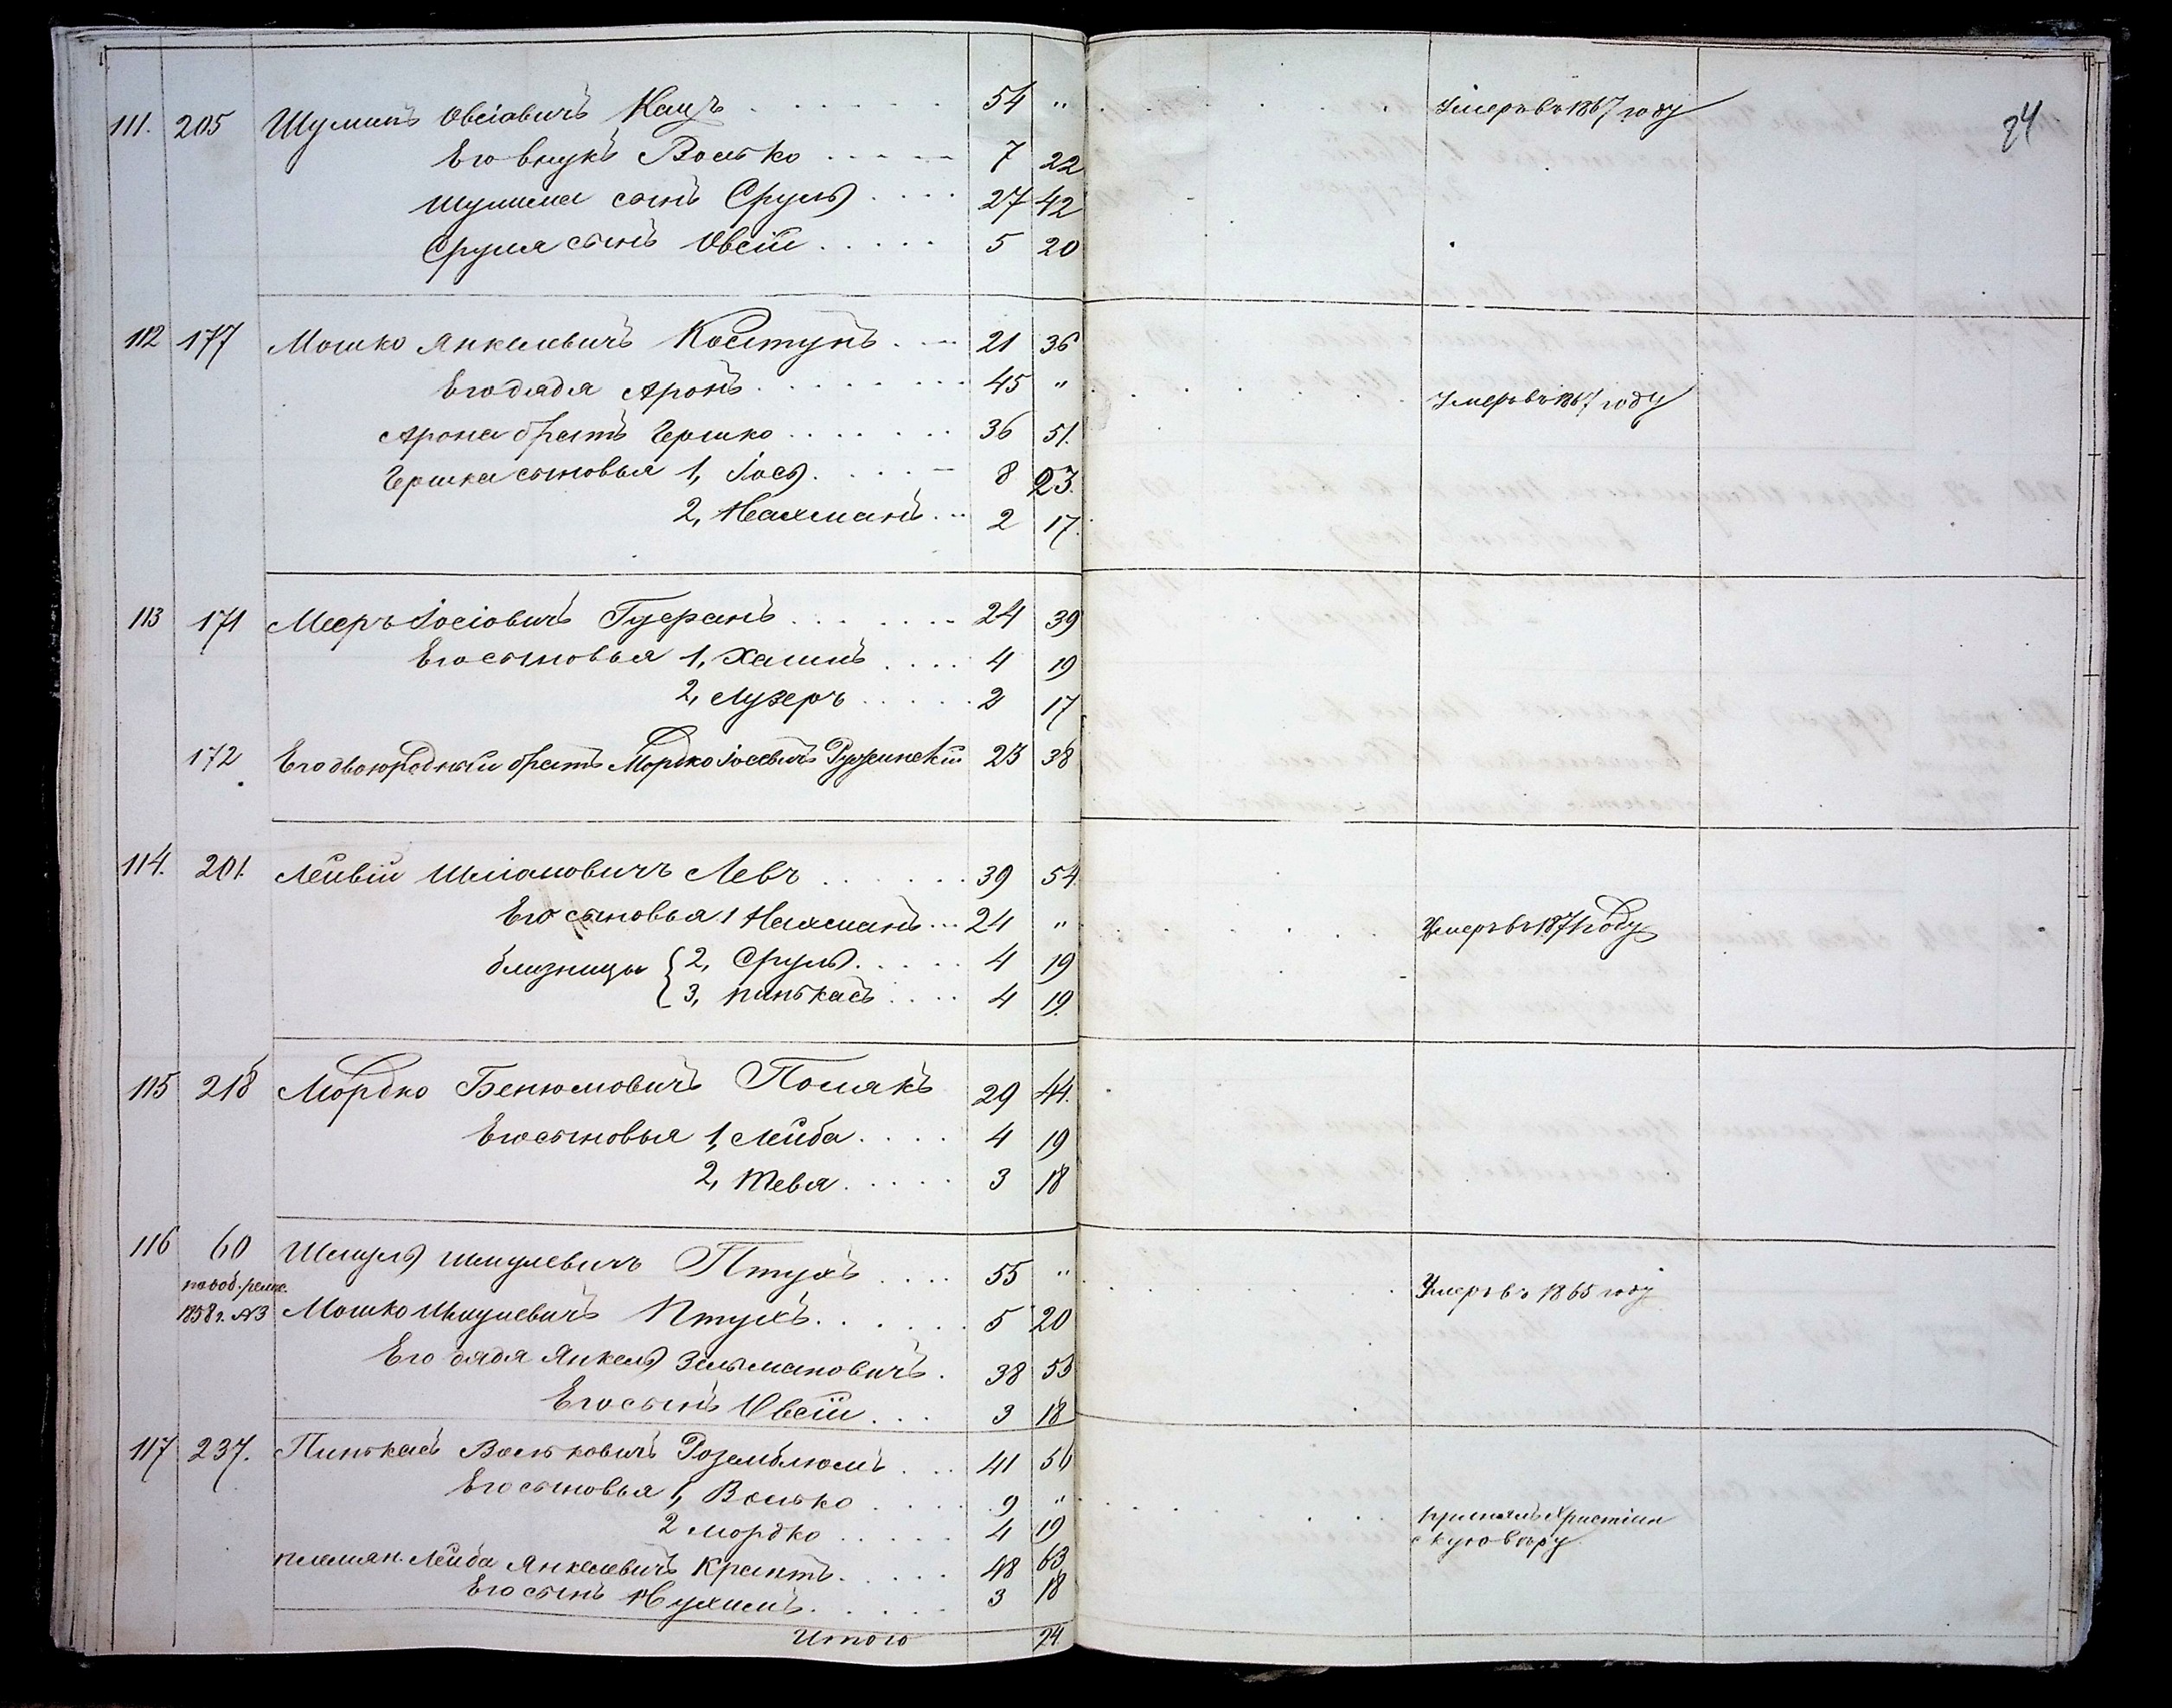 24
111. 205 Шулимъ Овсіовичъ Кацъ 54 " Умеръ въ 1867 году
Его внукъ Волько 7 22
Шулима сынъ Сруль 27 42
Сруля сынъ Овсій 5 20
112 177 Мошко Янкелевичъ Колтунъ 21 36
Его дядя Аронъ 45 " Умеръ въ 1867 году
Арона братъ Гершко 36 51.
Гершка сыновья 1, Іось 8 23.
2, Нахманъ 2 17.
113 171 Мееръ Іосіовичъ 24 39
Его сыновья 1, Хаимъ 4 19
2, Лузеръ 2 17
172 Его двоюродный братъ Мордко Іосевичъ Ружинскій 23 38
114. 201. Лейвій Шліомовичъ Левъ 39 54.
Его сыновья 1 Нахманъ 24 " Умеръ въ 1871 году
близнецы { 2, Сруль 4 19
3, Пинькасъ 4 19.
115 218 Мордко Бенюмовичъ Полякъ 29 44.
Его сыновья 1, Лейба 4 19
2, Тевя 3 18
116 60 Шмуль Шмулевичъ Птухъ 55 " Умеръ въ 1865 году
1858 г. №3 Мошко Шмулевичъ Птухъ 5 20
Его дядя Янкель Зельмановичъ 38 53
Его сынъ Овсій 3 18
117 237. Пинькасъ Вольковичъ Роземблюмъ 41 56
Его сыновья 1, Волько 9 " принялъ Христіан
2 Мордко 4 19 скую вѣру.
племян. Лейба Янкелевичъ Крантъ 48 63
Его сынъ Нухимъ 3 18
Итого 24.